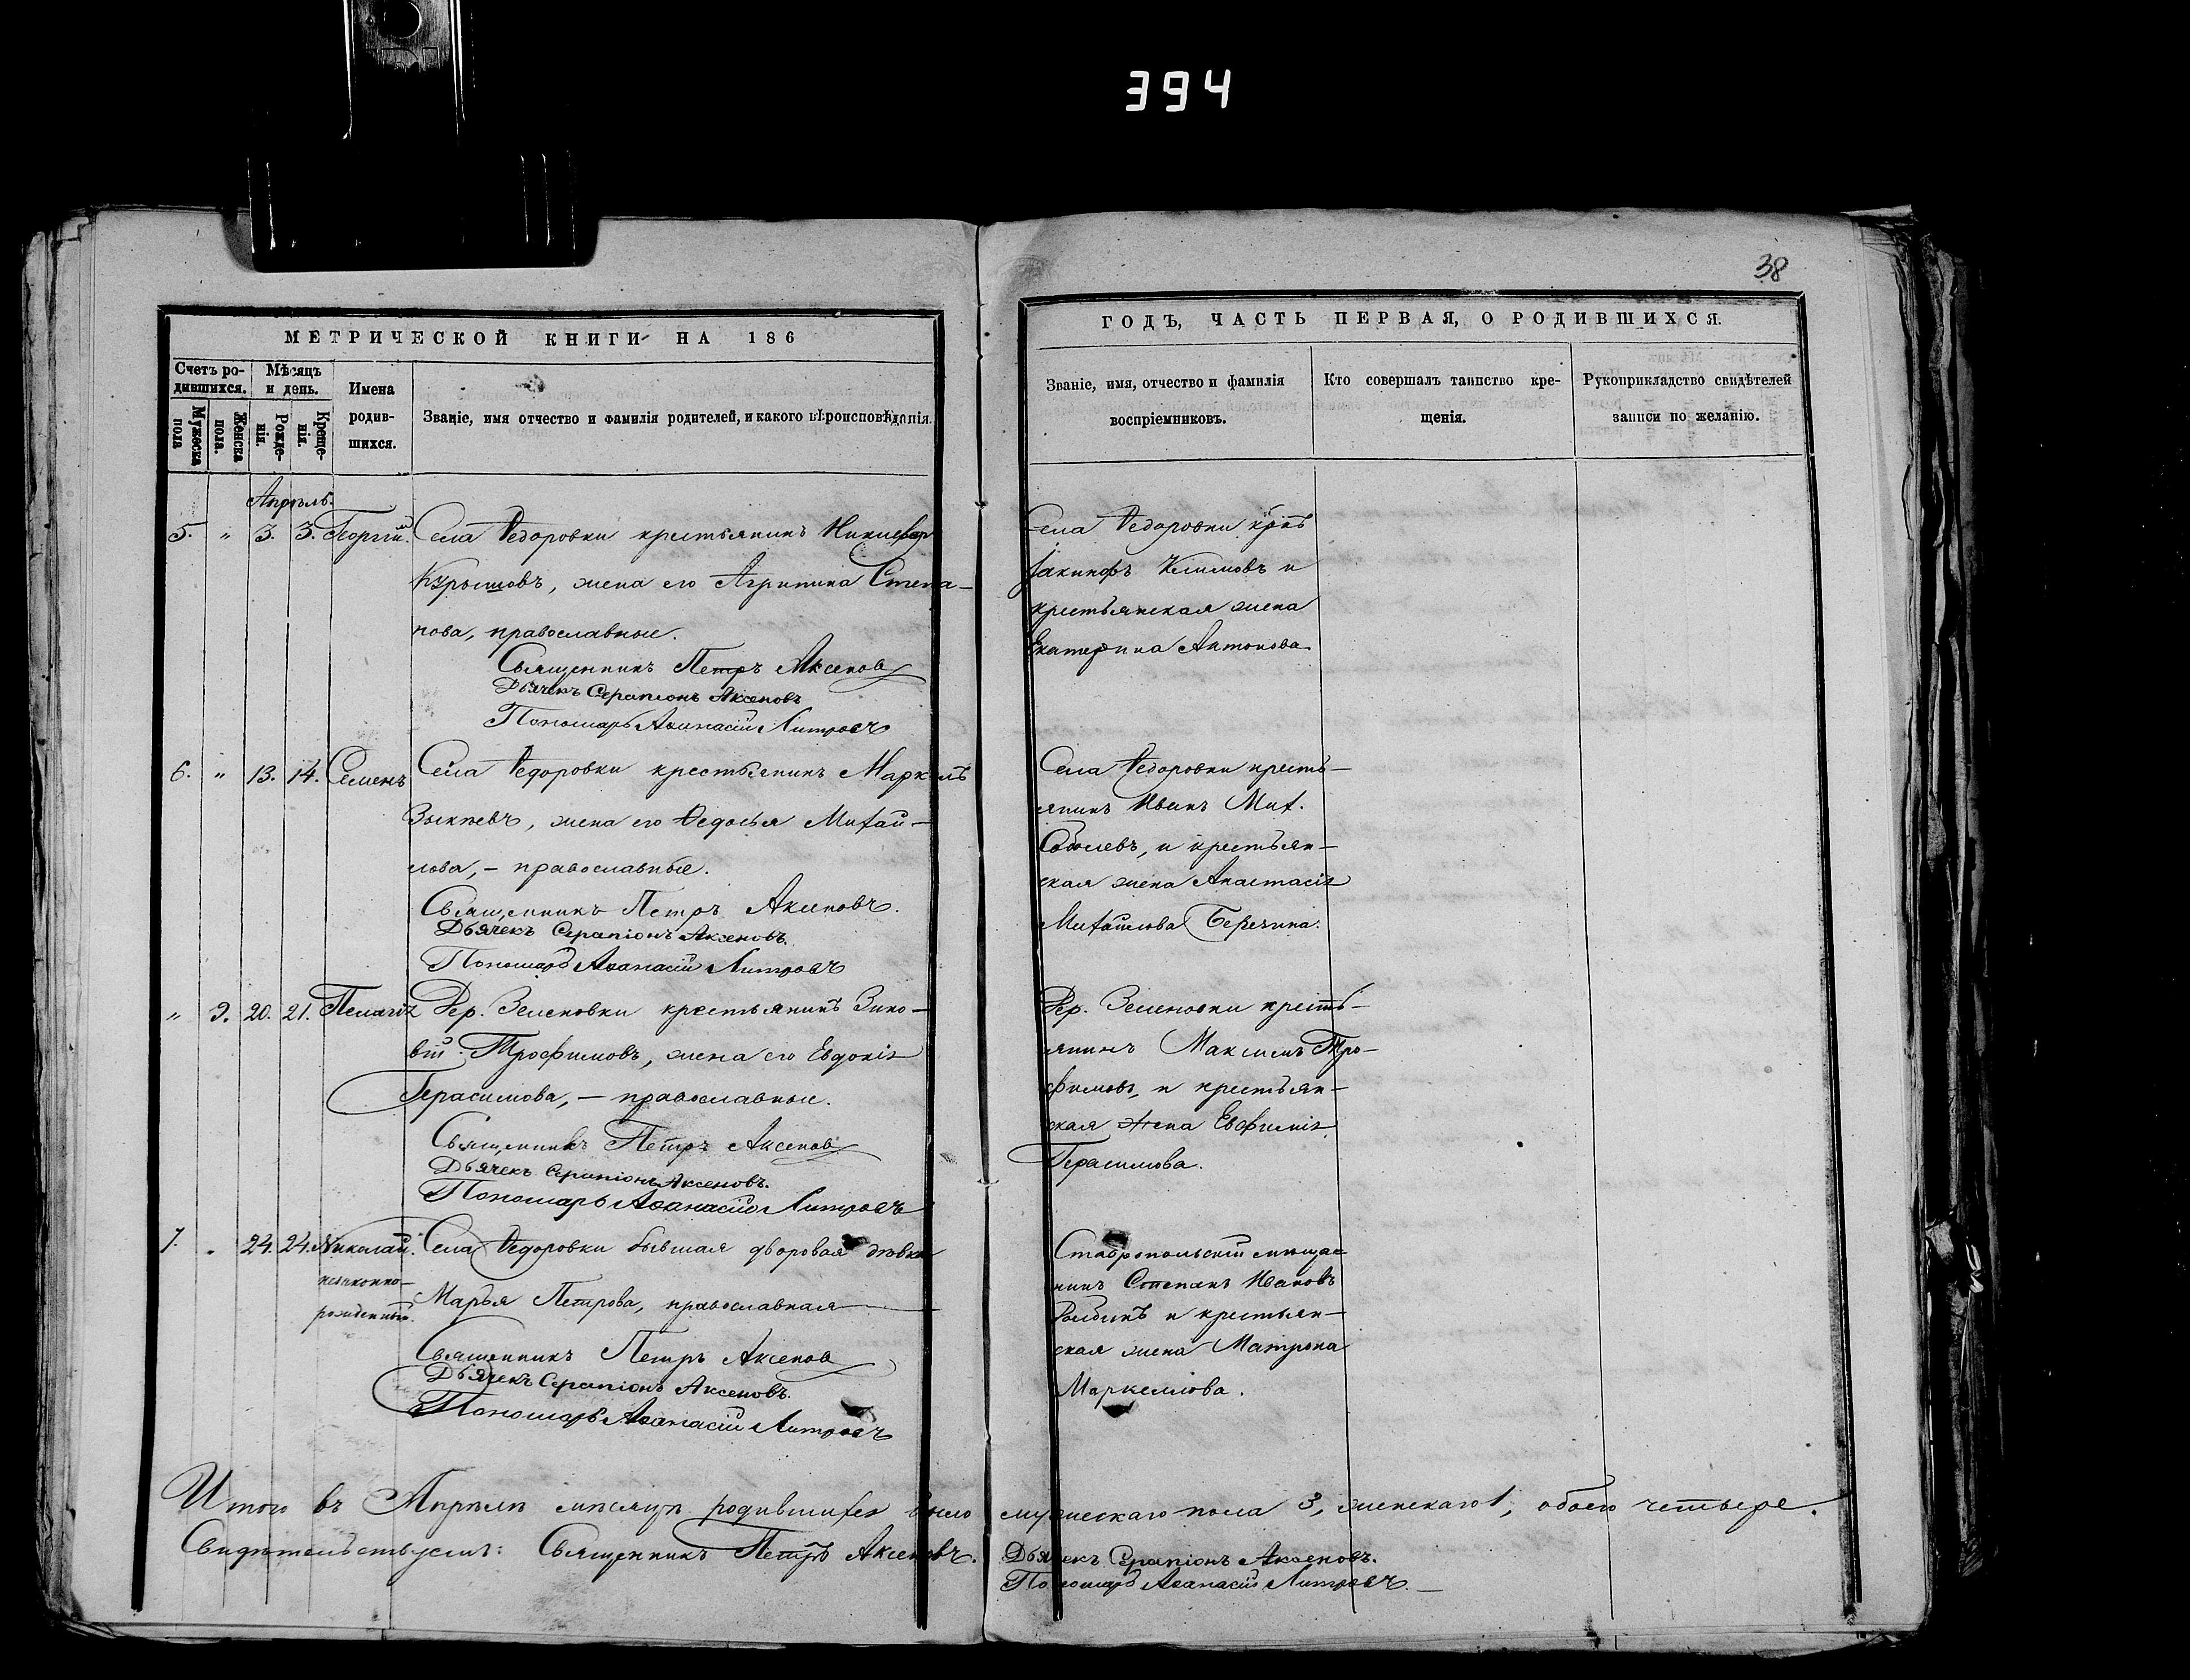 394
38
МЕТРИЧЕСКОЙ КНИГИ НА 186
Счетъ ро-
дившихся.
Мужеска
пола
Женска
пола.
Мѣсяцъ
и день.
Рожде-
нія.
Креще-
нія.
Имена
родив-
шихся.
Званіе, имя отчество и фамилія родителей, и какого вѣроисповѣданія.
Апрѣль.
5. " 3. 3. Георгій. Села Ѳедоровки крестьянинъ Никифор
Курышовъ, жена его Агрипина Степа-
нова, православные.
Священникъ Петръ Аксенов
Дьячекъ Серапіонъ Аксеновъ
Пономарь Аѳанасій
6. " 13. 14. Семенъ Села Ѳедоровки крестьянинъ Маркелъ
жена его Ѳедосья Михай-
лова, – православные.
Священникъ Петръ Аксеновъ.
Дьячекъ Серапіонъ Аксеновъ.
Пономарь Аѳанасій
" 20. 21. Пелагія Дер. Зеленовки крестьянинъ Зино-
вій Трофимовъ, жена его Евдокія
Герасимова, – православные.
Священникъ Петръ Аксенов
Дьячекъ Серапіонъ Аксеновъ.
Пономарь Аѳанасій
7. " 24. 24. Николай. Села Ѳедоровки бывшая дворовая дѣвка
незаконно-
рожденный.
Марья Петрова, православная
Священникъ Петръ Аксенов
Дьячекъ Серапіонъ Аксеновъ.
Пономарь Аѳанасій
ГОДЪ, ЧАСТЬ ПЕРВАЯ, О РОДИВШИХСЯ.
Званіе, имя, отчество и фамилія
воспріемниковъ.
Кто совершалъ таинство кре-
щенія.
Рукоприкладство свидѣтелей
записи по желанію.
Села Ѳедоровки
Климовъ и
крестьянская жена
Екатерина Антонова
Села Ѳедоровки кресть-
янинъ Иванъ Мих.
Соболевъ, и крестьян-
ская жена Анастасія
Михайлова
Дер. Зеленовки кресть-
янинъ Максимъ Тро-
фимовъ, и крестьян-
ская жена Евфимія
Герасимова.
Ставропольскій мѣща-
нинъ Степанъ Ивановъ
и крестьян-
ская жена Матрона
Маркелова.
Итого въ Апрѣлѣ мѣсяцѣ родившихся было мужескаго пола 3, женскаго 1, обоего четыре.
Свидѣтельствуемъ: Священникъ Петръ Аксеновъ. Дьячекъ Серапіонъ Аксеновъ.
Пономарь Аѳанасій